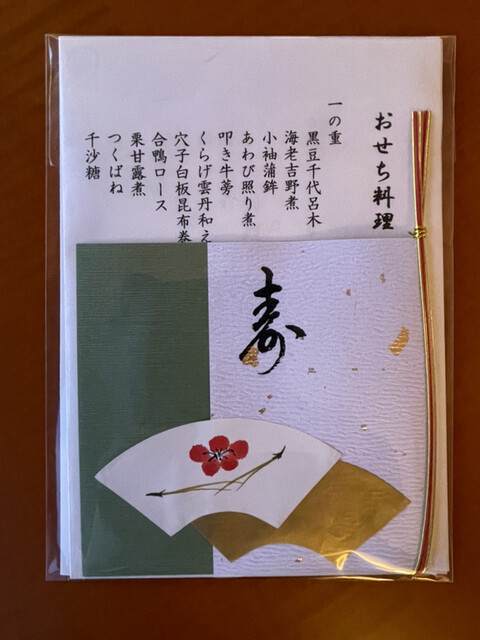 おせち料理
一の重
黒豆千代呂木
海老吉野煮
小袖蒲鉾
あわび照り煮
叩き牛蒡
くらげ雲丹和え
穴子白板昆布巻
合鴨ロース
栗甘露煮
つくばね
千沙糖
寿